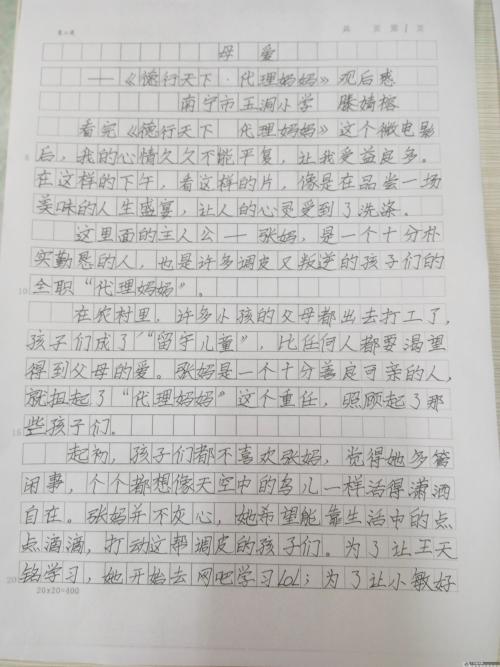 第二联
共 页第1页
母爱
——《德行天下·代理妈妈》观后感
南宁市玉洞小学 滕婧榕
看完《德行天下 代理妈妈》这个微电影
后，我的心情久久不能平复，让我受益良多。
在这样的下午，看这样的片，像是在品尝一场
美味的人生盛宴，让人的心灵受到了洗涤。
这里面的主人公——张妈，是一个十分朴
实勤恳的人，也是许多调皮又叛逆的孩子们的
全职“代理妈妈”。
在农村里，许多小孩的父母都出去打工了，
孩子们成了“留守儿童”，比任何人都要渴望
得到父母的爱。张妈是一个十分善良可亲的人，
就担起了“代理妈妈”这个重任，照顾起了那
些孩子们。
起初，孩子们都不喜欢张妈，觉得她多管
闲事，个个都想像天空中的鸟儿一样活得潇洒
自在。张妈并不灰心，她希望能靠生活中的点
点滴滴，打动这帮调皮的孩子们。为了让王天
铭学习，她开始去网吧学习LOL；为了让小敏好
5
10
15
20
20×20=400